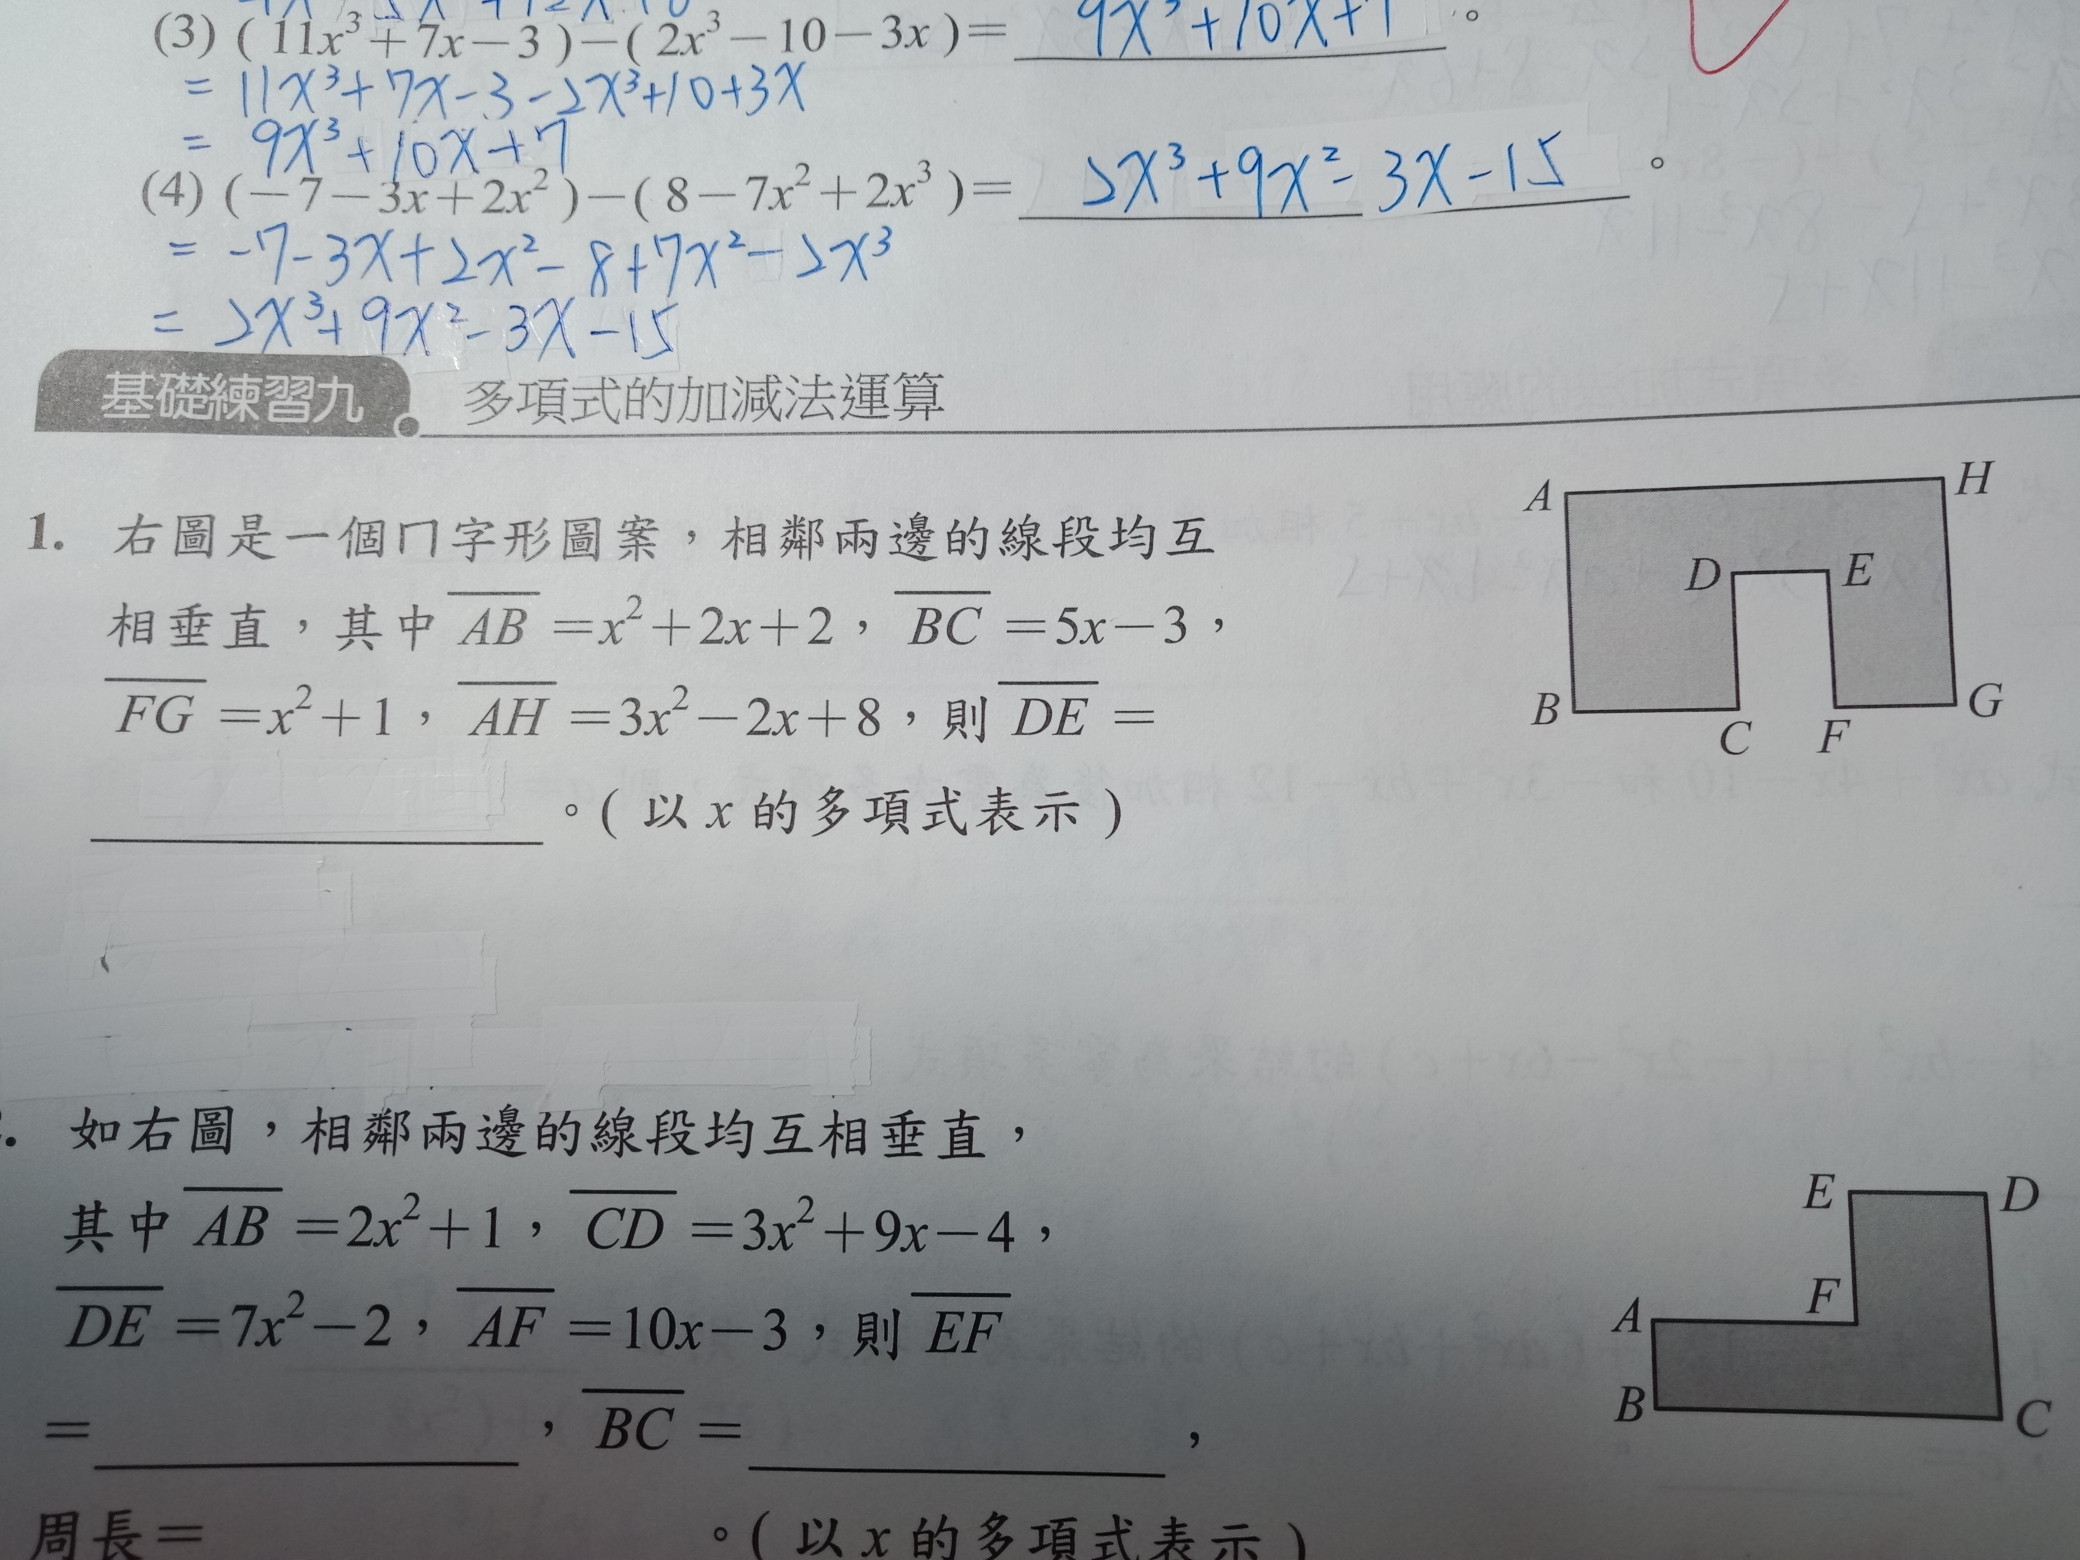 (3) (11x³+7x−3)−(2x³−10−3x)= 9x³+10x+7 。
= 11x³+7x-3-2x³+10+3x
= 9x³+10x+7
(4) (−7−3x+2x²)−(8−7x²+2x³)= 2x³+9x²-3x-15 。
= -7-3x+2x²-8+7x²-2x³
= 2x³+9x²-3x-15
基礎練習九 多項式的加減法運算
1. 右圖是一個ㄇ字形圖案，相鄰兩邊的線段均互
相垂直，其中 AB =x²+2x+2， BC =5x−3，
FG =x²+1， AH =3x²−2x+8，則 DE =
。( 以 x 的多項式表示 )
A
H
D
E
B
C
F
G
如右圖，相鄰兩邊的線段均互相垂直，
其中 AB =2x²+1， CD =3x²+9x−4，
DE =7x²−2， AF =10x−3，則 EF
= ， BC = ，
周長= 。( 以 x 的多項式表示 )
E
D
A
F
B
C